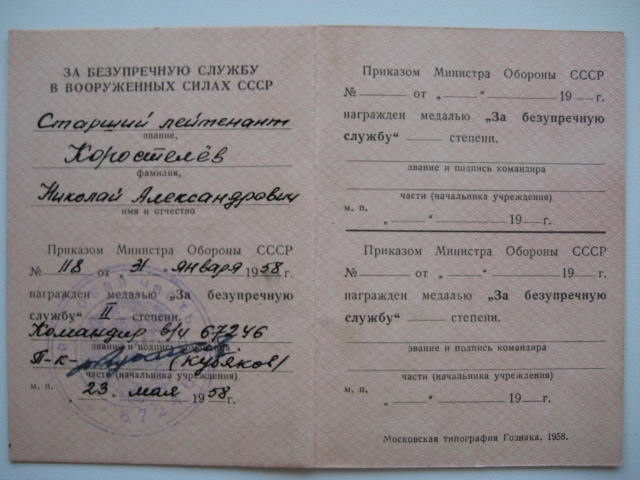 ЗА БЕЗУПРЕЧНУЮ СЛУЖБУ
В ВООРУЖЕННЫХ СИЛАХ СССР
Старший лейтенант
звание,
Коростелёв
фамилия,
Николай Александрович
имя и отчество
Приказом Министра Обороны СССР
№ 118 от „31 января 1958 г.
награжден медалью „За безупречную
службу“ II степени.
Командир в/ч 67246
звание и подпись командира
П-к- (Кубяков)
части (начальника учреждения)
м. п. 23 мая 1958 г.
Приказом Министра Обороны СССР
№ от „ “ 19 г.
награжден медалью „За безупречную
службу“ степени.
звание и подпись командира
части (начальника учреждения)
м. п.
„ “ 19 г.
Приказом Министра Обороны СССР
№ от „ “ 19 г.
награжден медалью „За безупречную
службу“ степени.
звание и подпись командира
части (начальника учреждения)
м. п.
„ “ 19 г.
Московская типография Гознака. 1958.